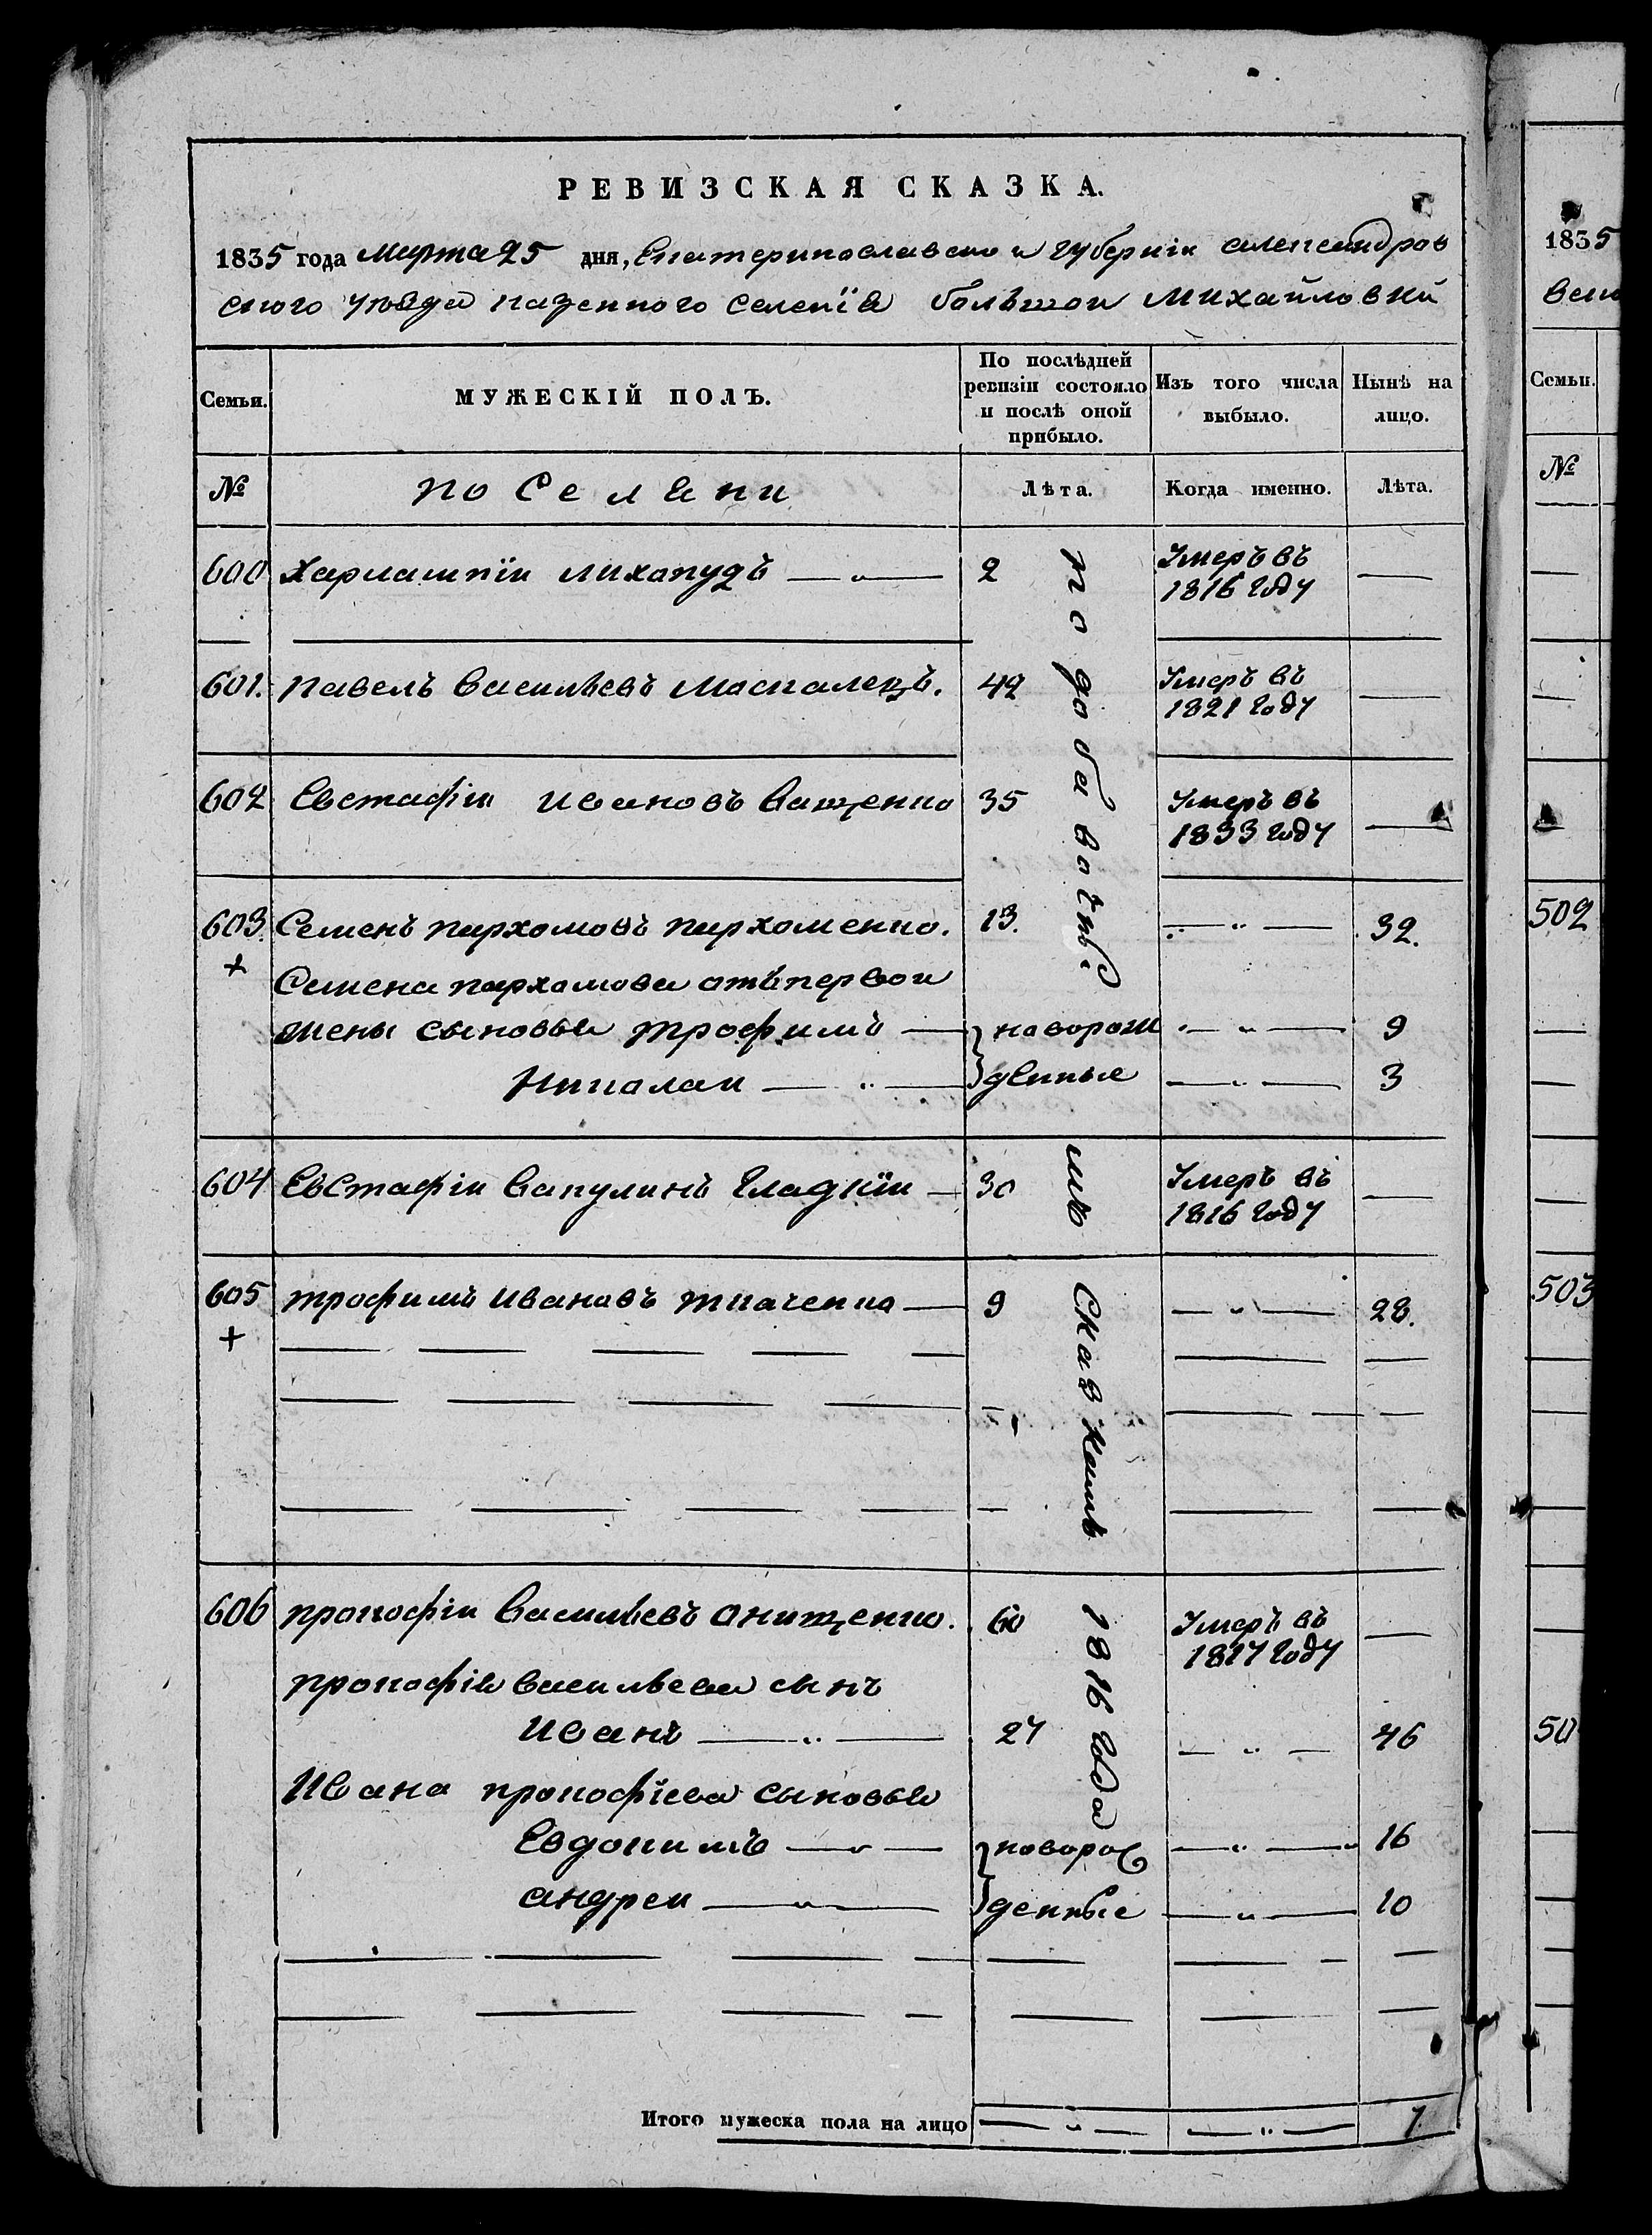 РЕВИЗСКАЯ СКАЗКА.
1835 года Марта 25 дня, Екатеринославской Губерніи Александров
ского уѣзда казенного селенія большой Михайловки
Семьи.
МУЖЕСКІЙ ПОЛЪ.
По послѣдней
ревизіи состояло
и послѣ оной
прибыло.
Изъ того числа
выбыло.
Нынѣ на
лицо.
№
поселяни
Лѣта.
Когда именно.
Лѣта.
по
600 Харлампіи Лихопудъ — „ — 2 Умеръ въ
1816 году —
601. Павелъ Васильевъ Москалецъ. 42 Умеръ въ
1821 году —
добавочнымъ
602 Евстафіи Ивановъ Ващенко 35 Умеръ въ
1833 году —
603. Семенъ Пархомовъ Пархоменко. 13. — „ — 32.
+
Семена Пархомова отъ первой
жены сыновья Трофимъ — новорож — „ — 9
Николаи — „ — денные — „ — 3
604 Евстафіи Вакулинъ Гладкіи — 30 Умеръ въ
1816 году —
605 Трофимъ Ивановъ Ткаченко — 9 — „ — 28.
+
сказкамъ
606 Прокофіи Васильевъ Онищенко. 60 Умеръ въ
1817 году —
1816 года
Прокофія Васильева сынъ
Иванъ — „ — 27 — „ — 46
Ивана Прокофіева сыновья
Евдокимъ — „ — новорож — „ — 16
Андреи — „ — денные — „ — 10
Итого мужеска пола на лицо — „ — — „ — 7.
1835
Семьи.
№
502
503
50